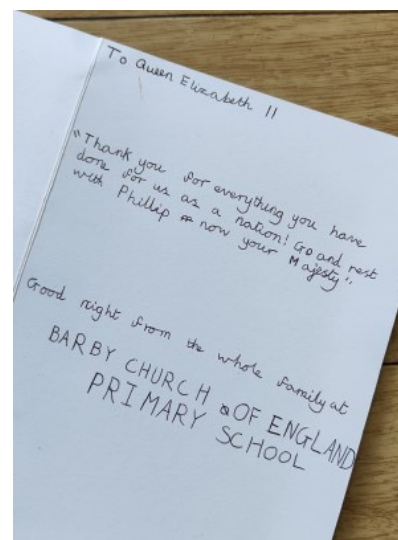 To Queen Elizabeth II
"Thank you for everything you have
done for us as a nation! Go and rest
with Phillip now your Majesty"
Good night from the whole family at
BARBY CHURCH OF ENGLAND
PRIMARY SCHOOL